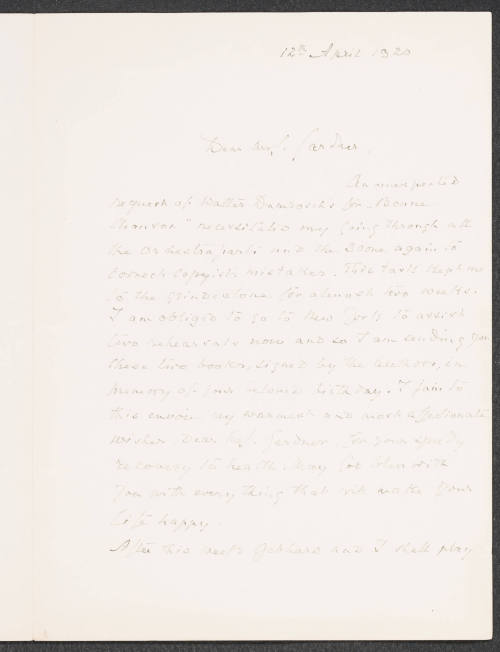 12th April 1920
Dear Mrs. Gardner,
An unexpected
request of Walter Damrosch's for "Bonne
Chanson" necessitated my going through all
the orchestra parts and the score again to
correct copyists mistakes. This task kept me
to the grindstone for almost two weeks.
I am obliged to go to New York to assist
two rehearsals now and so I am sending you
these two books, signed by the authors, in
memory of your birthday. I join to
this envoi my warmest and most affectionate
wishes Dear Mrs. Gardner for your speedy
recovery to health. May God bless with
you with every thing that will make your
life happy.
After this week Gebhard and I shall play